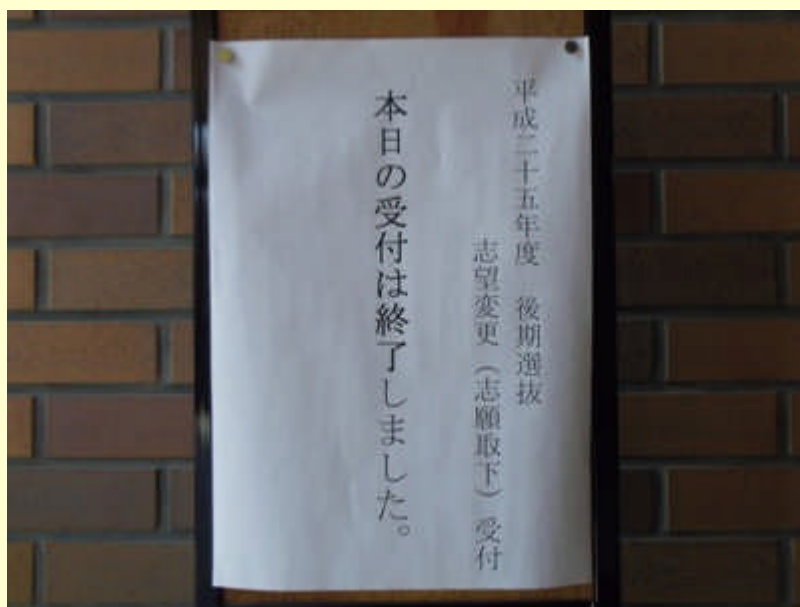 平成二十五年度　後期選抜
志望変更（志願取下）受付
本日の受付は終了しました。